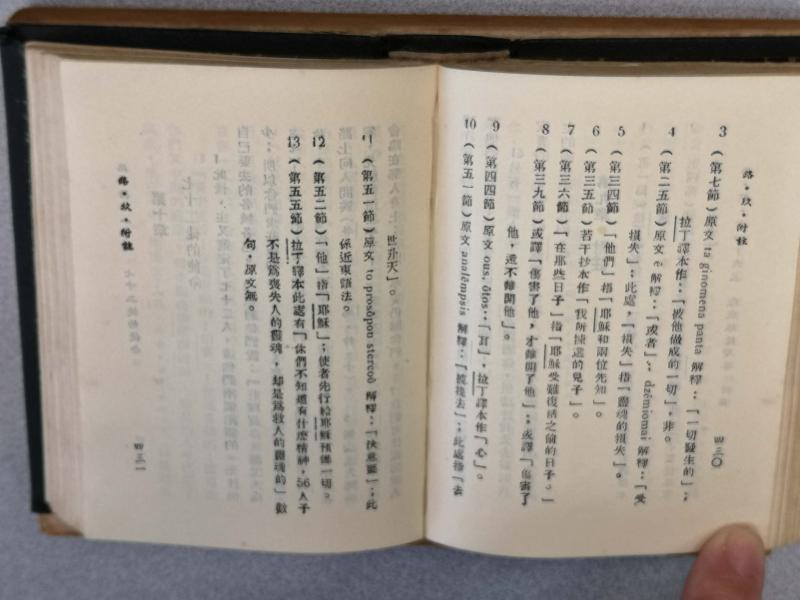 路・玖・附註
四三〇
3（第七節）原文 ta ginomena panta 解釋：「一切發生的」；
拉丁譯本作：「被他做成的一切」，非。
4（第二五節）原文 ē 解釋：「或者」；dzēmiomai 解釋：「受
損失」；此處，「損失」指「靈魂的損失」。
5（第三四節）「他們」指「耶穌和兩位先知」。
6（第三五節）若干抄本作「我所揀選的兒子」。
7（第三六節）「在那些日子」指「耶穌受難復活之前的日子。」
8（第三九節）或譯「傷害了他，才離開了他」；或譯「傷害了
他，還不離開他」。
9（第四四節）原文 ous, ōtos：「耳」，拉丁譯本作「心」。
10（第五一節）原文 analēmpsis 解釋：「被接去」；此處指「去
世升天」。
11（第五一節）原文 to prosōpon stereoō 解釋：「決意願」；此
係近東語法。
12（第五二節）「他」指「耶穌」；使者先行給耶穌預備一切。
13（第五五節）拉丁譯本此處有「你們不知道有什麼精神，56人子
不是爲喪失人的靈魂，却是爲救人的靈魂的」數
句，原文無。
路・玖・附註
四三一